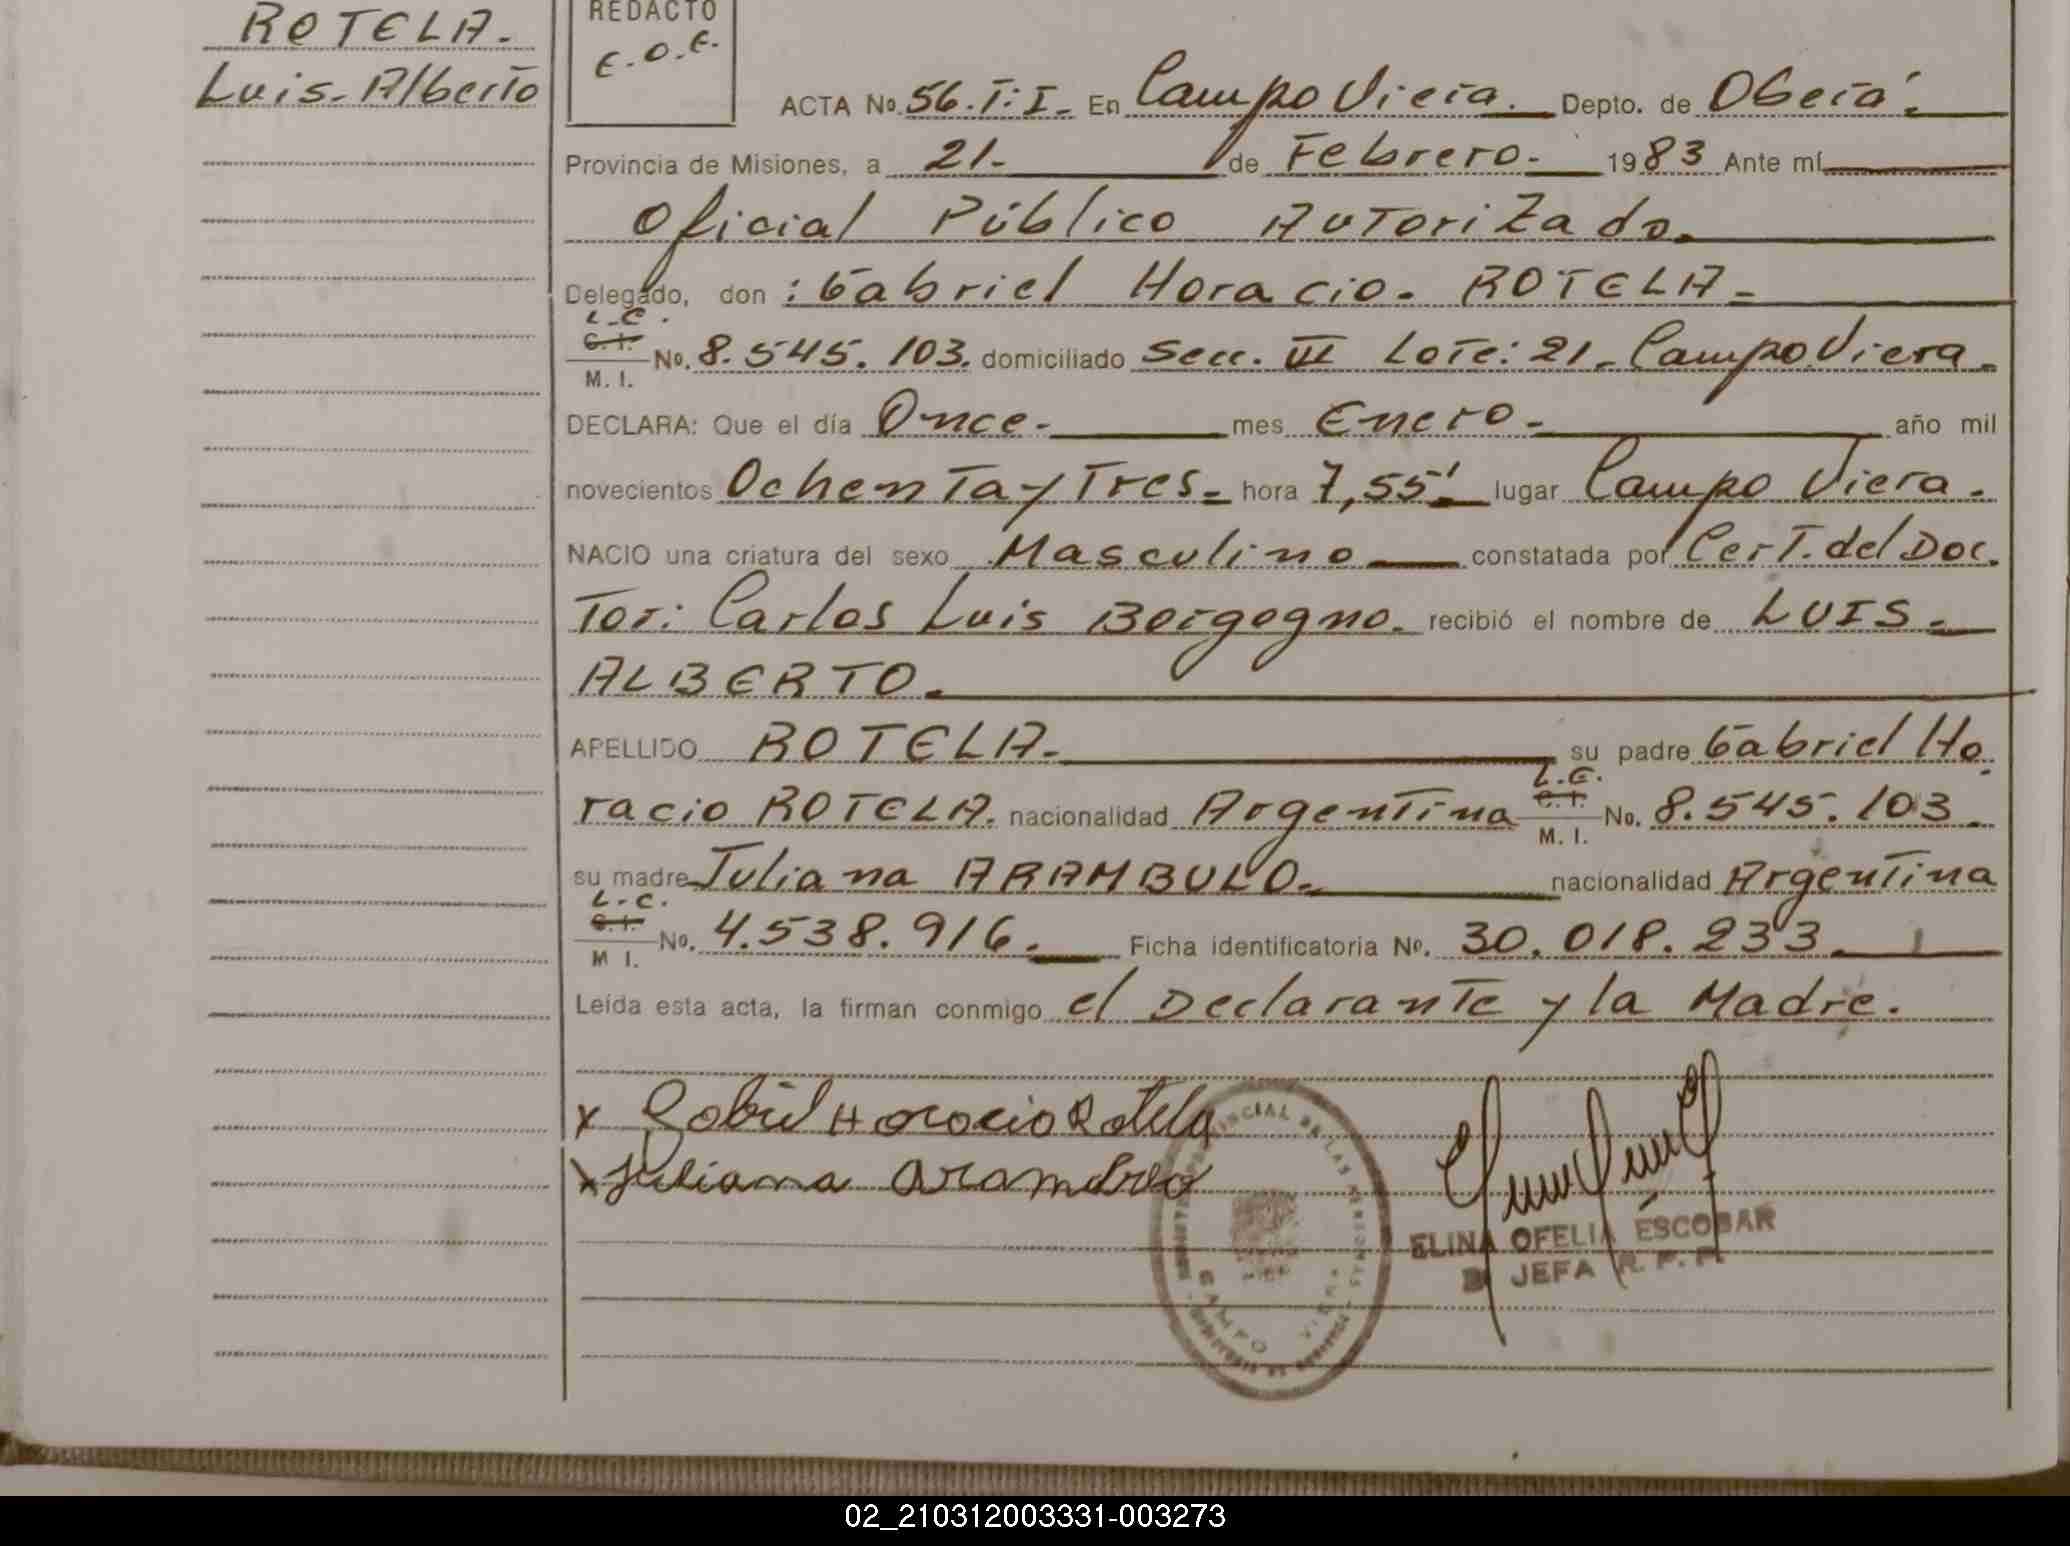 ROTELA.
Luis-Alberto
REDACTO
E.O.E.
ACTA No. 56.T:I. En Campo Viera. Depto. de Oberá.
Provincia de Misiones, a 21. de Febrero. 1983 Ante mí
Oficial Público Autorizado.
Delegado, don: Gabriel Horacio. ROTELA.
L.E.
C.I.
M. I.
No. 8.545.103. domiciliado Secc. VI Lote: 21. Campo Viera.
DECLARA: Que el día Once. mes Enero. año mil
novecientos Ochenta y Tres. hora 7,55'. lugar Campo Viera.
NACIO una criatura del sexo Masculino constatada por Cert. del Doc.
Tor: Carlos Luis Borgogno. recibió el nombre de LUIS.
ALBERTO.
APELLIDO ROTELA. su padre Gabriel Ho
racio ROTELA. nacionalidad Argentina L.E. C.I. M. I. No. 8.545.103.
su madre Juliana ARAMBULO. nacionalidad Argentina
L.C.
C.I.
M I.
No. 4.538.916. Ficha identificatoria No. 30.018.233.
Leída esta acta, la firman conmigo el Declarante y la Madre.
x Gabriel Horacio Rotela
x Juliana
CAMPO VIERA
ELINA OFELIA ESCOBAR
JEFA R. P. P.
02_210312003331-003273